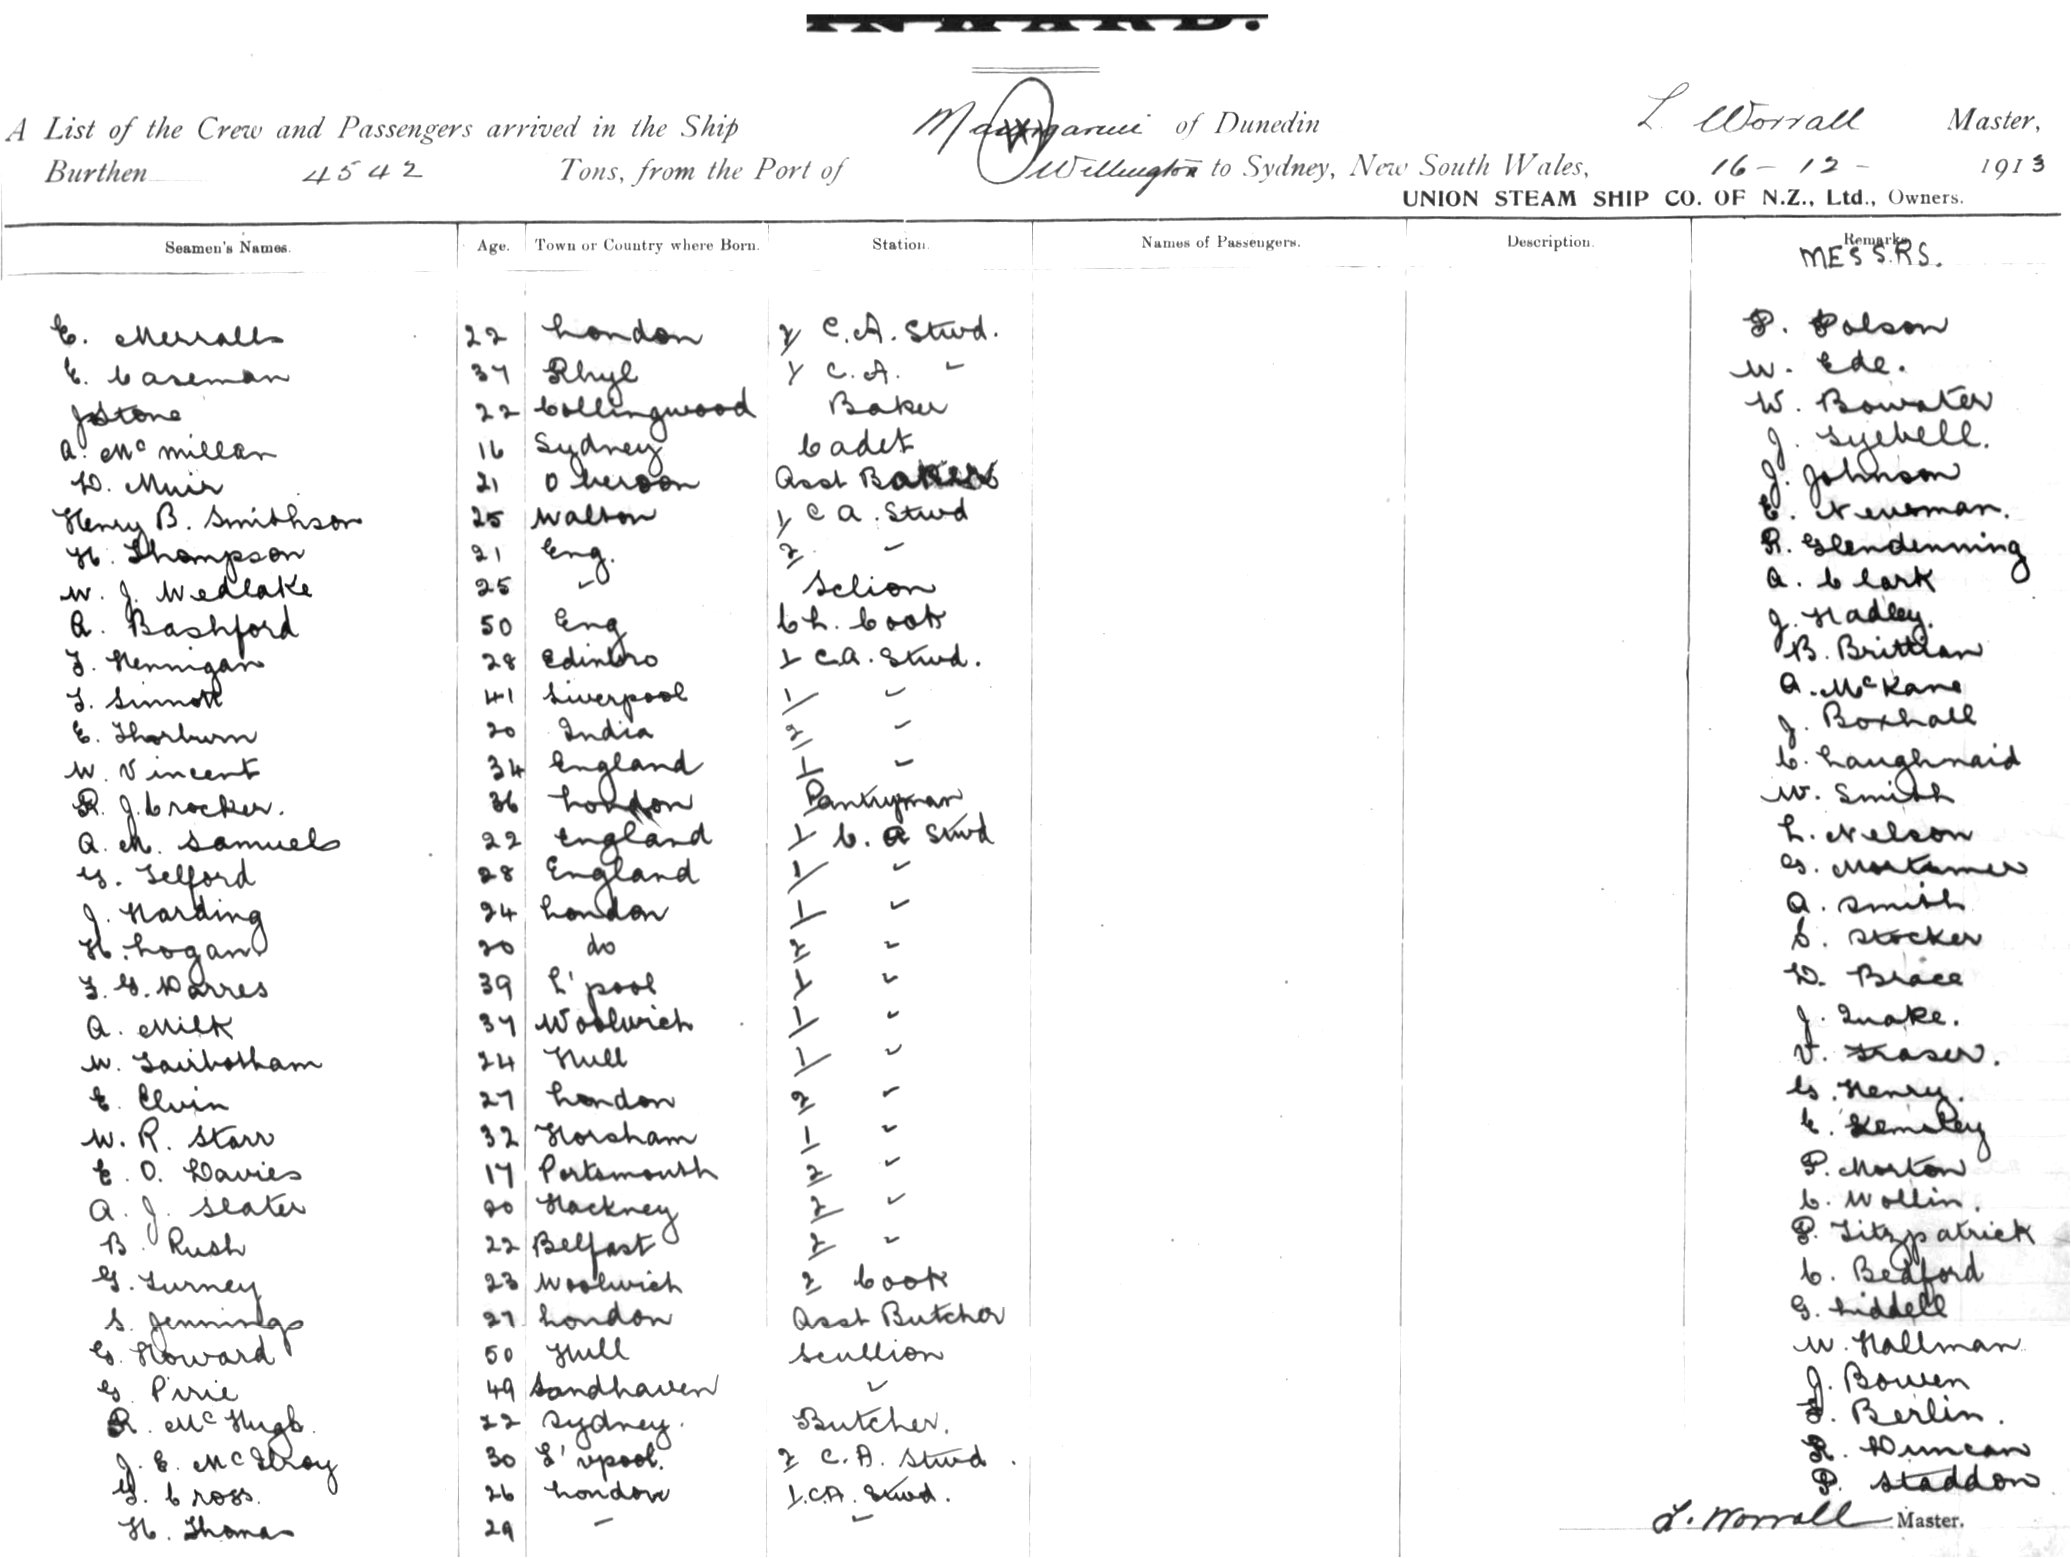 INWARD.
A List of the Crew and Passengers arrived in the Ship of Dunedin L. Worrall Master,
Burthen 4542 Tons, from the Port of Wellington to Sydney, New South Wales, 16 - 12 - 1913
UNION STEAM SHIP CO. OF N.Z., Ltd., Owners.
Seamen's Names. Age. Town or Country where Born. Station. Names of Passengers. Description. Remarks
MESSRS.
E. Merralls 22 London 2/ C.A. Stwd. P. Polson
E. Caseman 37 Rhyl 1/ C.A. " W. Ede.
J Stone 22 Collingwood Baker W. Bowater
A. McMillan 16 Sydney Cadet J. Syebell.
D. Muir 21 Oberoon Asst Baker J. Johnson
Henry B. Smithson 25 Walton 1/ C A. Stwd E. Newman.
H. Thompson 21 Eng. 2 " R. Glendenning
W. J. Wedlake 25 " Sclion A. Clark
A. Bashford 50 Eng Ch. Cook J. Hadley.
F. Hennigan 28 Edinbro 1 C.A. Stwd. B. Brittian
F. Sinnott 41 Liverpool 1/ " A. McKane
E. Thorburn 20 India 2/ " J. Boxhall
W. Vincent 34 England 1 " C. Laughnaid
R. J. Crocker. 36 London Pantryman W. Smith
A. M. Samuels 22 England 1 C. A Stwd L. Nelson
G. Telford 28 England 1/ " G. Mortimer
J. Harding 24 London 1 " A. Smith
H. Logan 20 do 2 " S. Stocker
F. G. Darres 39 L'pool 1 " D. Brace
A. Milk 37 Woolwich 1/ " J. Quake.
W. Fairbotham 24 Hull 1/ " V. Fraser.
E. Elvin 27 London 2 " G. Henry.
W. R. Starr 32 Horsham 1 " E. Kemsley
E. O. Davies 17 Portsmouth 2 " P. Morton
A. J. Slater 20 Hackney 2 " C. Wollin.
B. Rush 22 Belfast 2 " P. Fitzpatrick
G. Turney 23 Woolwich 2 Cook C. Bedford
S. Jennings 27 London Asst Butcher G. Liddell
G. Howard 50 Hull Scullion W. Hallman
G. Pirie 49 Sandhaven " J. Bowen
R. McHugh. 22 Sydney. Butcher. F. Berlin.
J. E. McIlroy 30 L'vpool. 2 C.A. Stwd. R. Duncan
G. Cross. 26 London 1.C.A. Stwd. P. Staddon
H. Thomas 29 " " L. Worrall Master.